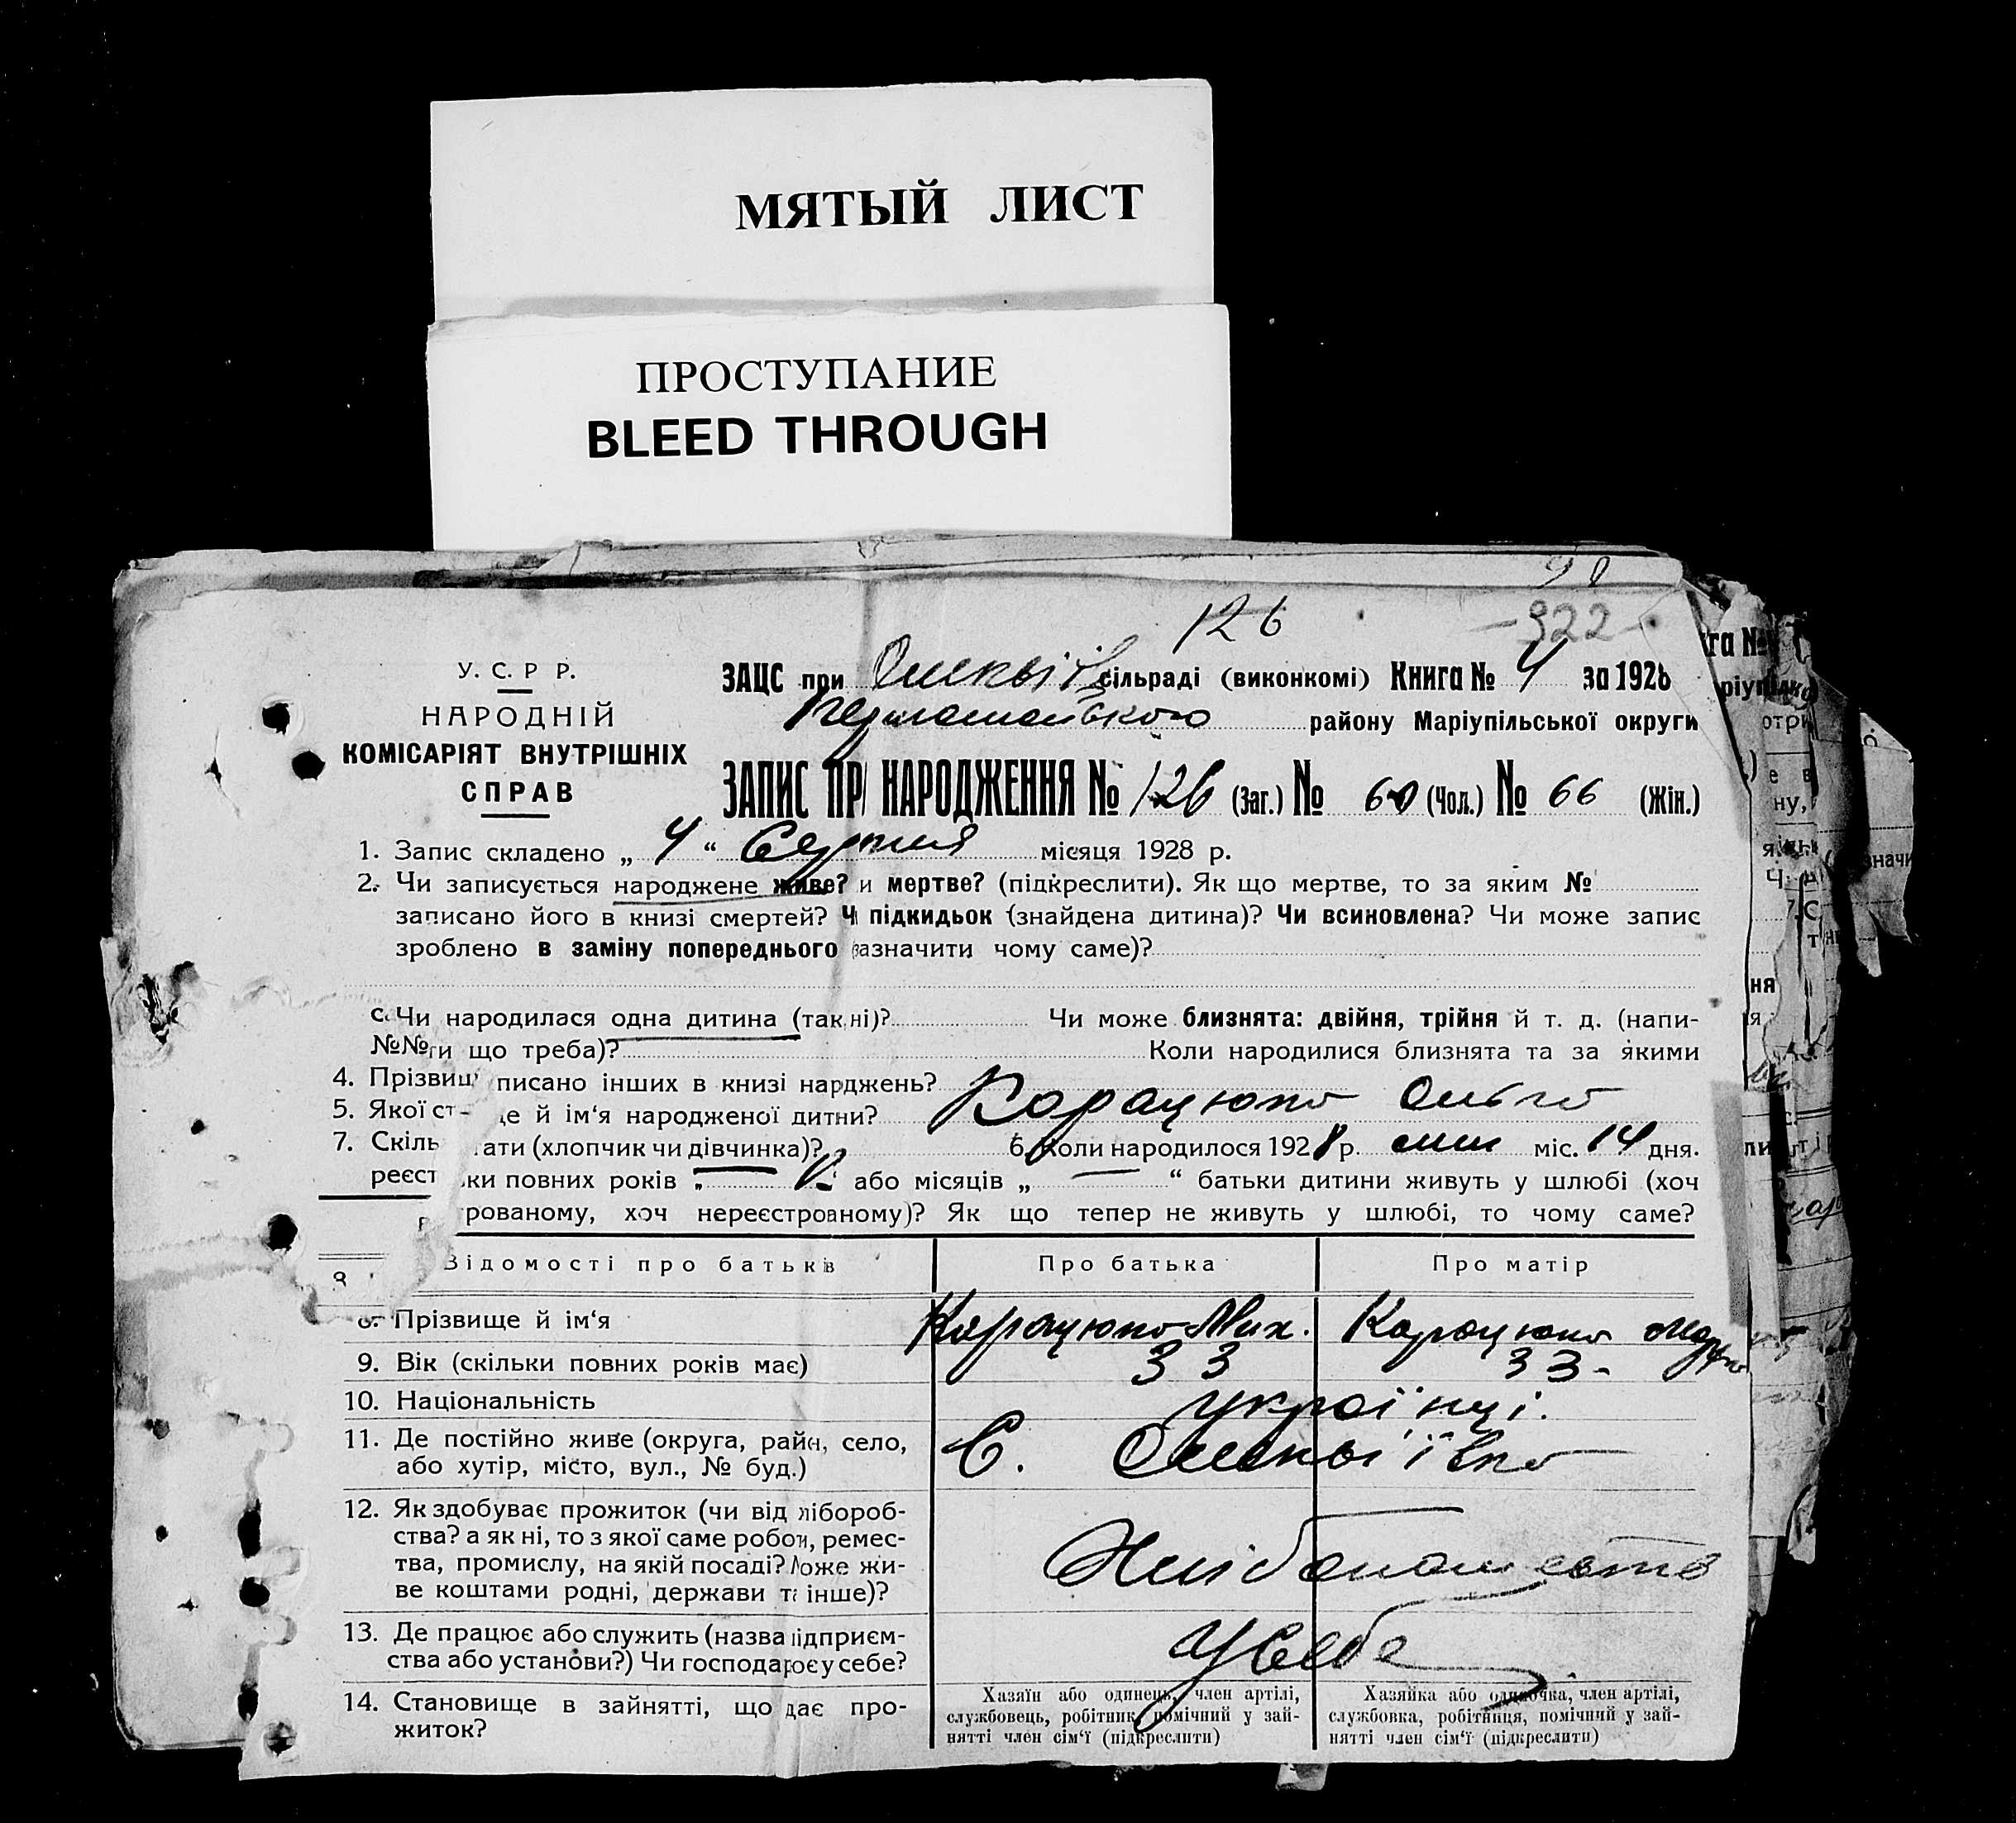 МЯТЫЙ ЛИСТ
ПРОСТУПАНИЕ
BLEED THROUGH
90
126 -922-
У. С. Р Р.
НАРОДНІЙ
КОМІСАРІЯТ ВНУТРІШНІХ
СПРАВ
ЗАЦС при сільраді (виконкомі) Книга № 4 за 1928
району Маріупільської округи
ЗАПИС ПР НАРОДЖЕННЯ № 126 (Заг.) № 60 (Чол.) № 66 (Жін.)
1. Запис складено „ 4 “ Серпня місяця 1928 р.
2. Чи записується народжене живе? и мертве? (підкреслити). Як що мертве, то за яким №
записано його в книзі смертей? Ч підкидьок (знайдена дитина)? Чи всиновлена? Чи може запис
зроблено в заміну попереднього азначити чому саме)?
Чи народилася одна дитина (так ні)? Чи може близнята: двійня, трійня й т. д. (напи-
№№ ги що треба)? Коли народилися близнята та за якими
4. Прізвищ писано інших в книзі нарджень?
5. Якої ст де й ім‘я народженої дитни? Карацюпа Ольга
7. Скіль тати (хлопчик чи дівчинка)? 6. Коли народилося 1928 р. лип міс. 14 дня.
реєст ки повних років „ або місяців „ — “ батьки дитини живуть у шлюбі (хоч
рованому, хоч нереєстрованому)? Як що тепер не живуть у шлюбі, то чому саме?
Відомості про батьків Про батька Про матір
8. Прізвище й ім‘я Карацюпа Мих. Карацюпа
9. Вік (скільки повних років має) 33 33-
10. Національність українці.
11. Де постійно живе (округа, райн, село,
або хутір, місто, вул., № буд.) С.
12. Як здобуває прожиток (чи від лібороб-
ства? а як ні, то з якої саме роботи, ремес-
тва, промислу, на якій посаді? Може жи-
ве коштами родні, держави та інше)?
13. Де працює або служить (назва підприєм-
ства або установи?) Чи господарює у себе? У себе
14. Становище в зайнятті, що дає про-
житок?
Хазяїн або одинець, член артілі,
службовець, робітник, помічний у зай-
нятті член сім‘ї (підкреслити)
Хазяйка або одиночка, член артілі,
службовка, робітниця, помічний у зай-
нятті член сім‘ї (підкреслити)